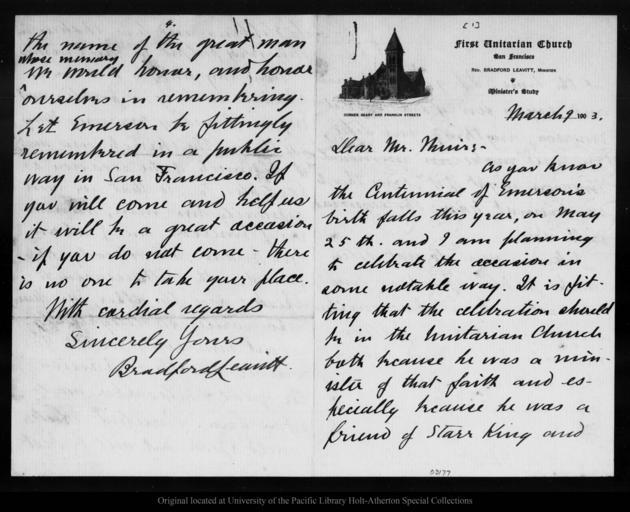 [1]
First Unitarian Church
San Francisco
Rev. BRADFORD LEAVITT, Minister
Minister's Study
CORNER GEARY AND FRANKLIN STREETS
March 9 1903.
Dear Mr. Muir:-
As you know
the Centennial of Emerson's
birth falls this year, on May
25th. and I am planning
to celebrate the occasion in
some notable way. It is fit-
ting that the celebration should
be in the Unitarian Church
both because he was a min-
ister of that faith and es-
pecially because he was a
friend of Starr King and
4.
the name of the great man
whose memory
we would honor, and honor
ourselves in remembering.
Let Emerson be fittingly
remembered in a public
way in San Francisco. If
you will come and help us
it will be a great occasion
- if you do not come - there
is no one to take your place.
With cordial regards
Sincerely Yours
Bradford Leavitt.
03177
Original located at University of the Pacific Library Holt-Atherton Special Collections